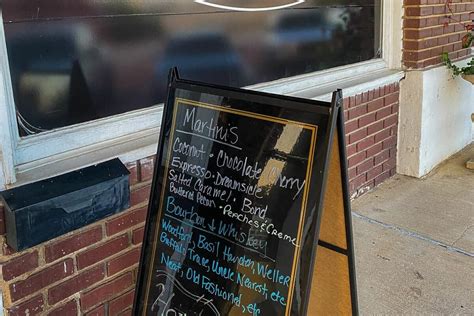 Martini's
Coconut - Chocolate Cherry
Espresso - Dreamsicle
Salted Caramel - Bond
Buttered Pecan - Peaches & Creme
Bourbon & Whiskey
Woodford, Basil Hayden, Weller
Buffalo Trace, Uncle Nearest, etc
Neat, Old Fashioned, etc